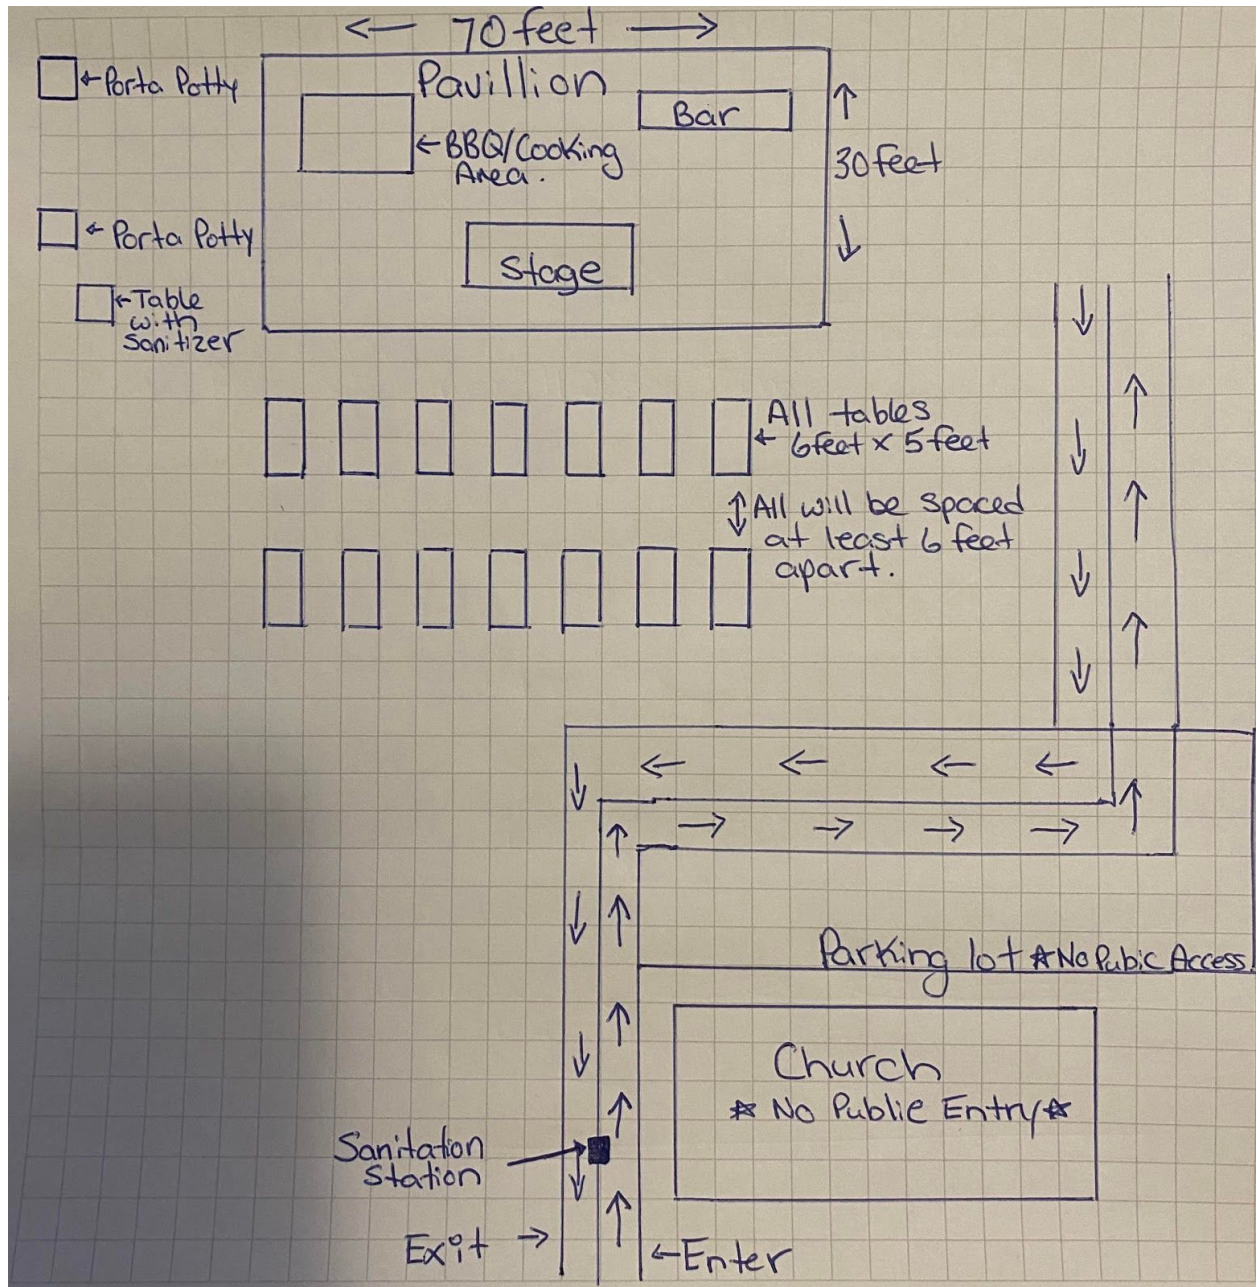 70 feet
Pavillion
Porta Potty
Bar
BBQ/Cooking
Area.
30 feet
Porta Potty
Stage
Table
with
Sanitizer
All tables
6 feet x 5 feet
All will be spaced
at least 6 feet
apart.
Parking lot ☆No Pubic Access.
Church
☆ No Public Entry☆
Sanitation
Station
Exit
Enter